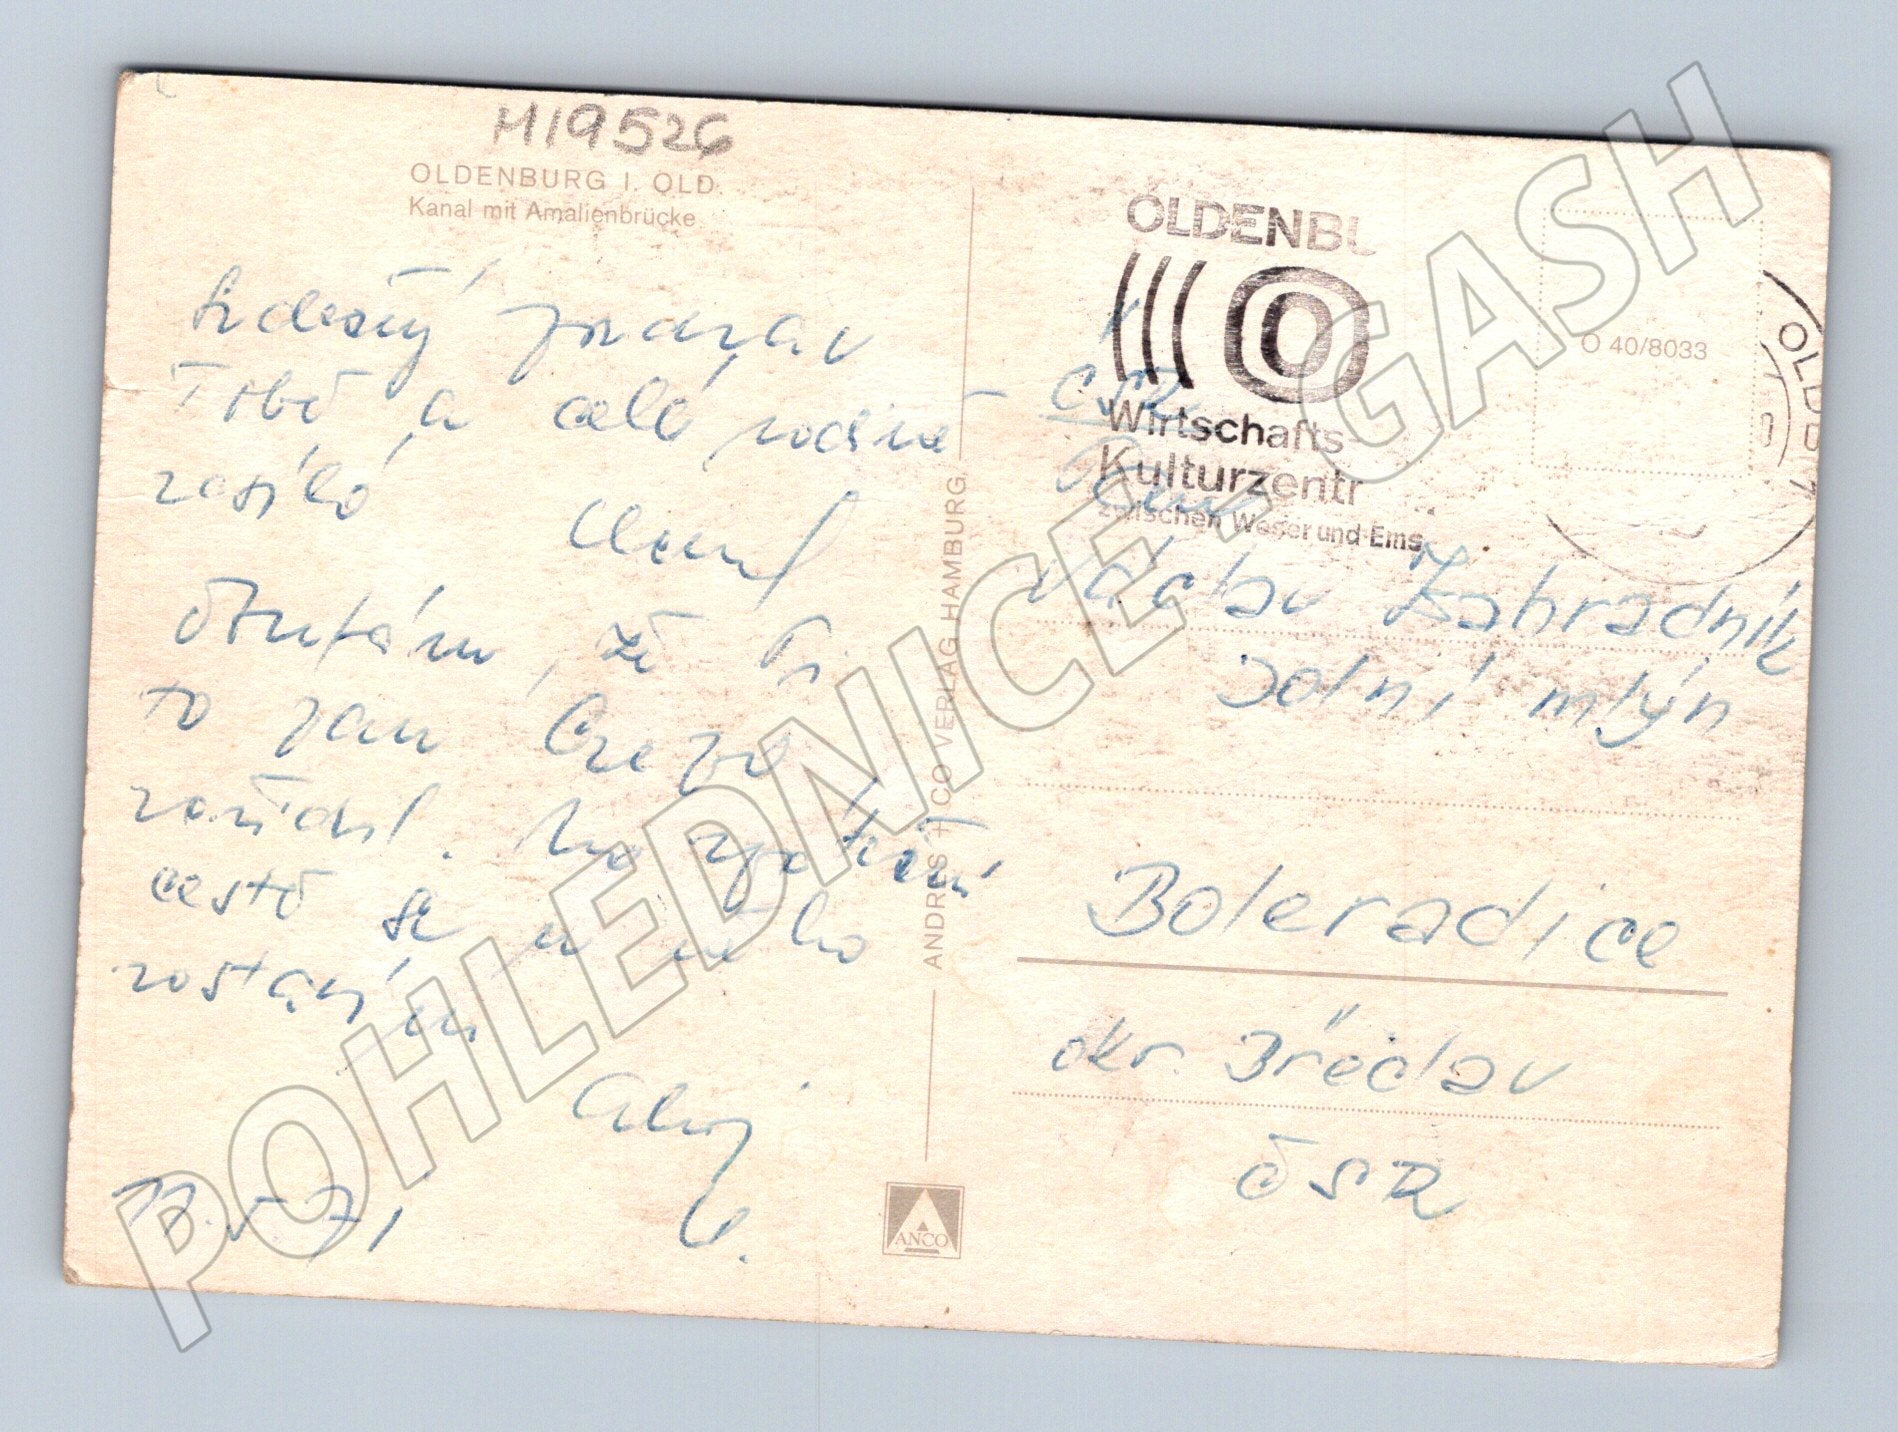 M19526
OLDENBURG I. OLD.
Kanal mit Amalienbrücke
Srdečný pozdrav
Tobě a celé rodině
zasílá
Doufám, že Ti
to pan
zařídil. Na zpáteční
cestě se u něho
zastavím
Alois
71
ANDRES + CO VERLAG HAMBURG
ANCO
OLDENBU
Wirtschafts-
Kulturzentr
zwischen Weser und Ems
O 40/8033
OLD
ČSR
Pan
Václav Zahradník
Dolní mlýn
Boleradice
okr. Břeclav
ČSR
POHLEDNICE - GASH